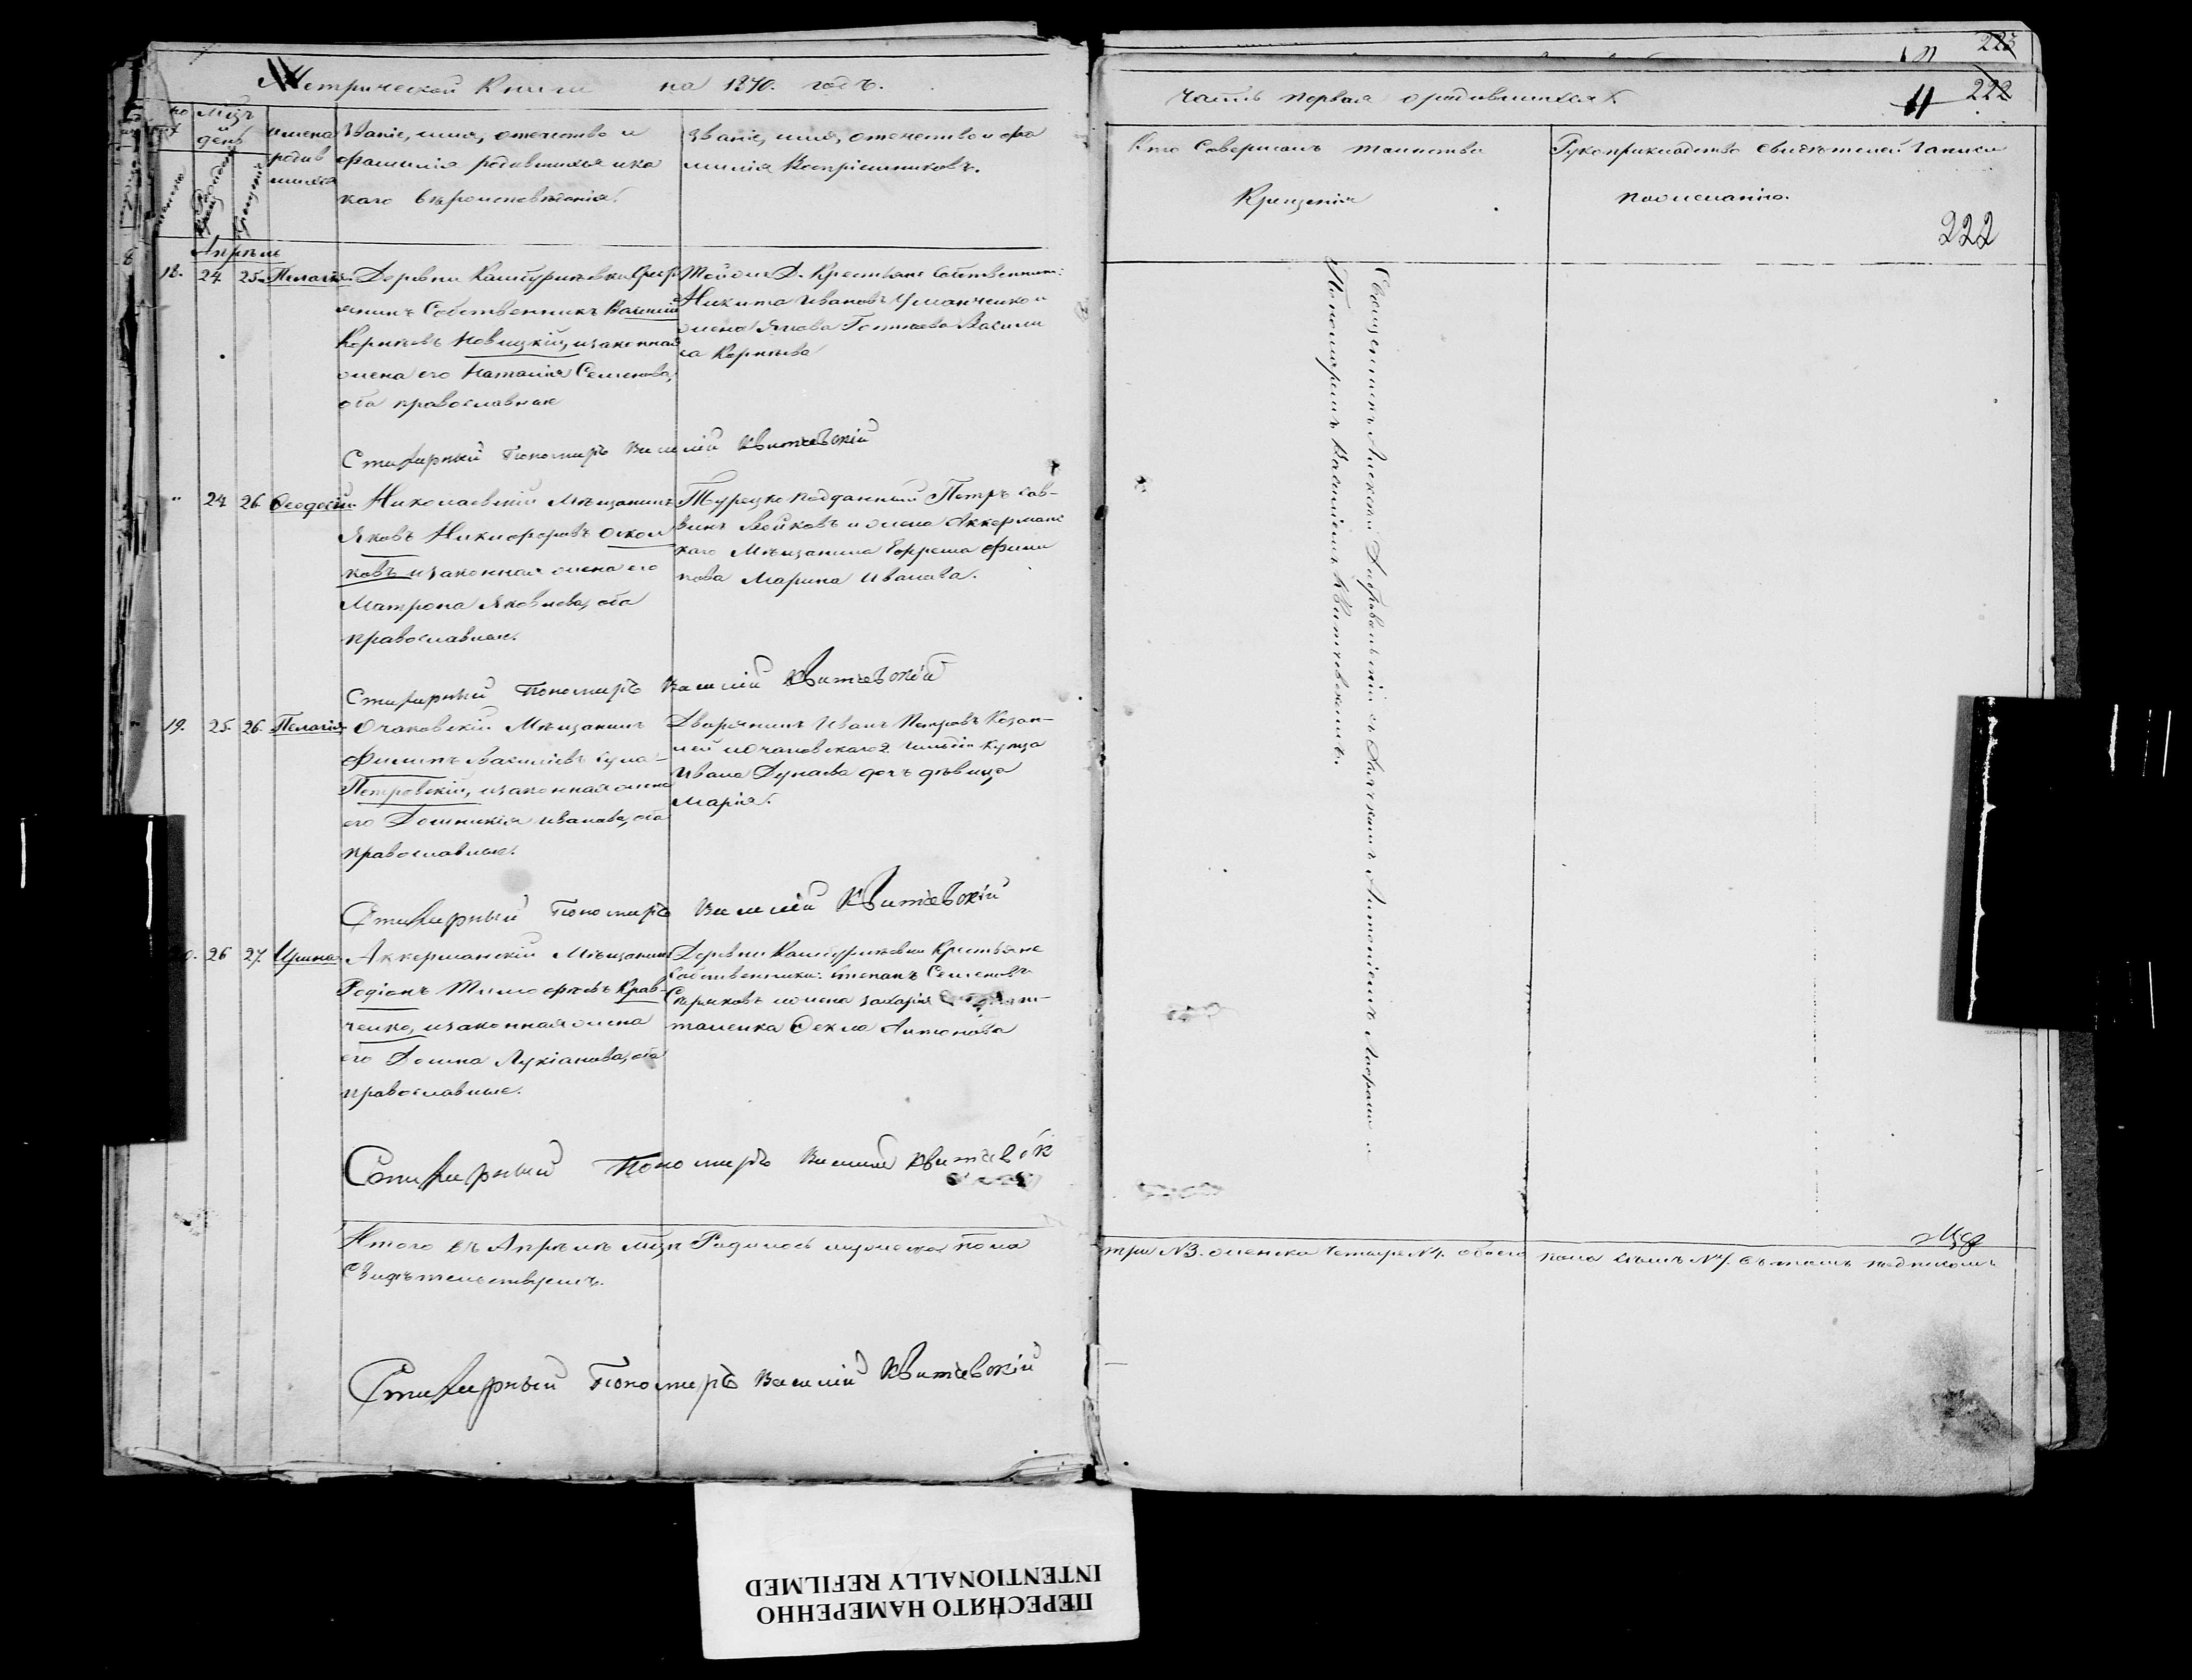 Метрической Книги на 1870. годъ.
Мѣц
день
имена
родив
шихся
Званіе, имя, отечество и
фамилія родившихъ и ка
каго вѣроисповѣданія.
Званіе, имя, отечество и фа
милія Воспріемниковъ.
Апрѣль
18. 24 25. Пелагія.
Деревни Камбуриновки Крестьянинъ Собственникъ Василій
Корнѣевъ Новицкій, и законная
жена его Наталія Семенова,
оба православные
Той же Д. Крестьяне Собственник:
Никита Ивановъ Уманченко и
жена Якова Василиса Корнѣева
Стихарный Пономарь Василій Квитневскій
" 24 26 Ѳеодосій.
Николаевскій Мѣщанинъ
Яковъ Никифоровъ
ковъ и законная жена его
Матрона Яковлева, оба
православные.
Турецко подданный Петръ Сав-
винъ Войковъ и жена Аккерманс
каго Мѣщанина Ефрема Фили
пова Марина Иванова.
Стихарный Пономарь Василій Квитневскій
19. 25. 26. Пелагія
Очаковскій Мѣщанинъ
Филипъ Василіевъ
Петровскій, и законная жена
его Домникія Иванова, оба
православные.
Дворянинъ Иванъ Петровъ Козан-
лей и Очаковскаго 2 гильдіи купца
Ивана Дунаева дочь дѣвица
Марія.
Стихарный Пономарь Василій Квитневскій
26 27. Ирина
Аккерманскій Мѣщанинъ
Родіонъ Тимофѣевъ Крав-
ченко, и законная жена
его Домна Лукіанова, оба
православные.
Деревни Камбуриновки Крестьяне
Собственники: Степанъ Семеновъ
Стриковъ и жена Захарія
таленка Ѳекла Антонова
Стихарный Пономарь Василій Квитневск
Итого въ Апрѣлѣ мцѣ Родилось мужеска пола
Свидѣтельствуемъ.
Стихарный Пономарь Василій Квитневскій
223
Часть первая о родившихся
11 222
Кто Совершалъ таинство
Крещенія
Рукоприкладство свидѣтелей записи
по желанію.
222
Священникъ Алексѣй съ Дьячкомъ Антоніемъ
Пономаремъ Василіемъ Квитневскимъ.
три №3. женска четыре №4. обоего пола семь №7. въ томъ подписомъ
ПЕРЕСНЯТО НАМЕРЕННО
INTENTIONALLY REFILMED